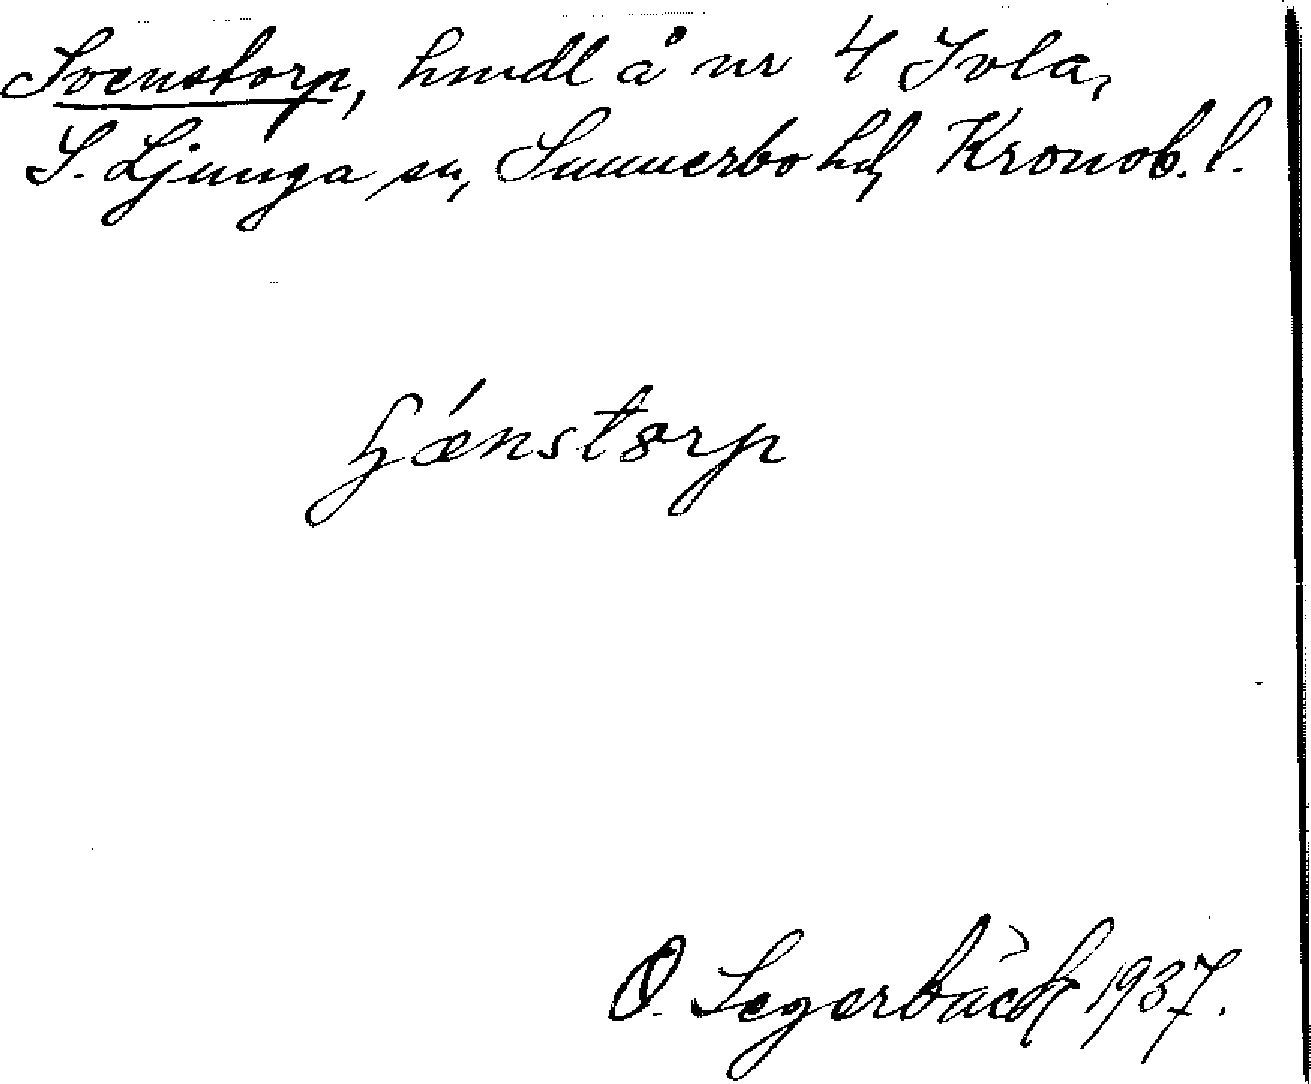 Svenstorp, hmdl å nr 4 Ivla,
S. Ljunga sn, Sunnerbo hd, Kronob. l.
O. Segerbäck 1937.